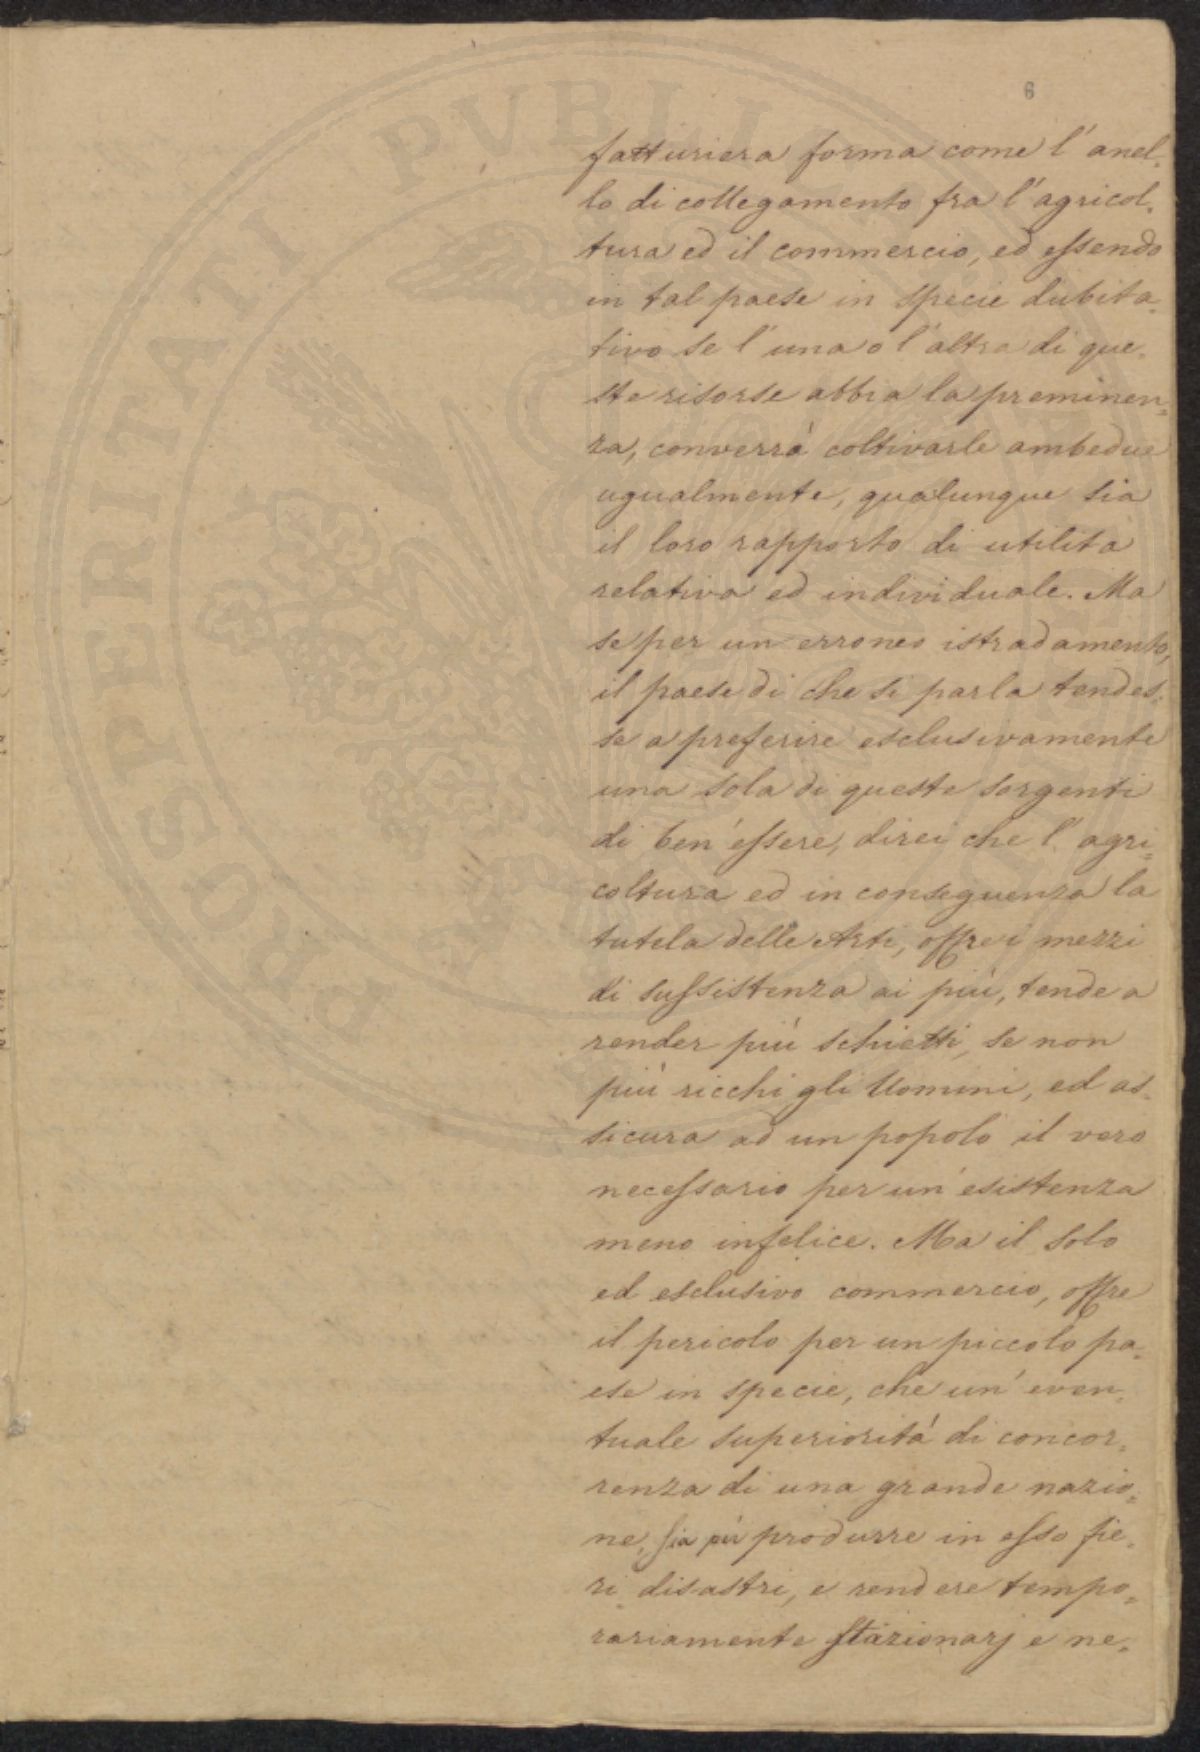 6
fatturiera forma come l'anel=
lo di collegamento fra l'agricol=
tura ed il commercio, ed essendo
in tal paese in specie dubita=
tivo se l'una o l'altra di que=
ste risorse abbia la preminen=
za, converrà coltivarle ambedue
ugualmente, qualunque sia
il loro rapporto di utilità
relativa ed individuale. Ma
se per un erroneo istradamento,
il paese di che si parla tendes=
se a preferire esclusivamente
una sola di queste sorgenti
di ben'essere, direi che l'agri=
coltura ed in conseguenza la
tutela delle Arti, offre i mezzi
di sussistenza ai più, tende a
render più schietti, se non
più ricchi gli Uomini, ed as=
sicura ad un popolo il vero
necessario per un'esistenza
meno infelice. Ma il solo
ed esclusivo commercio, offre
il pericolo per un piccolo pa=
ese in specie, che un'even=
tuale superiorità di concor=
renza di una grande nazio=
ne, produrre in esso fie=
ri disastri, e rendere tempo=
rariamente stazionarj e ne=
PROSPERITATI PVBLI